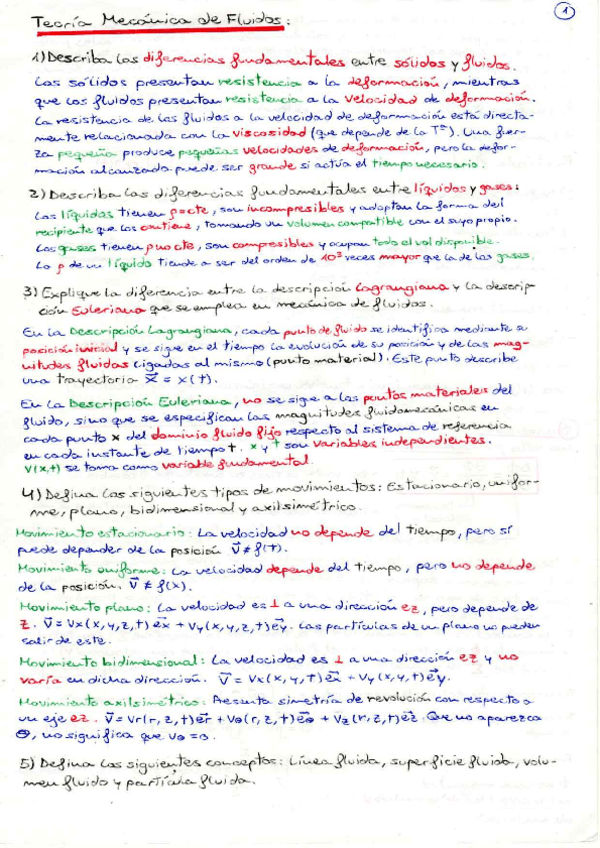 1
Teoría Mecánica de Fluidos:
1) Describa las diferencias fundamentales entre sólidos y fluidos.
Los sólidos presentan resistencia a la deformación, mientras
que los fluidos presentan resistencia a la velocidad de deformación.
La resistencia de los fluidos a la velocidad de deformación está directa-
mente relacionada con la viscosidad (que depende de la Tª). Una fuer-
za pequeña produce pequeñas velocidades de deformación, pero la defor-
mación alcanzada puede ser grande si actúa el tiempo necesario.
2) Describa las diferencias fundamentales entre líquidos y gases:
Los líquidos tienen ρ cte, son incompresibles y adaptan la forma del
recipiente que los contiene, tomando un volumen compatible con el suyo propio.
Los gases tienen ρ no cte, son compresibles y ocupan todo el vol disponible.
La ρ de un líquido tiende a ser del orden de 10³ veces mayor que la de los gases.
3) Explique la diferencia entre la descripción Lagrangiana y la descrip-
ción Euleriana que se emplea en mecánica de fluidos.
En la Descripción Lagrangiana, cada punto de fluido se identifica mediante su
posición inicial y se sigue en el tiempo la evolución de su posición y de las mag-
nitudes fluidas ligadas al mismo (punto material). Este punto describe
una trayectoria x⃗ = x(t).
En la Descripción Euleriana, no se sigue a los puntos materiales del
fluido, sino que se especifican las magnitudes fluidomecánicas en
cada punto x del dominio fluido fijo respecto al sistema de referencia
en cada instante de tiempo t. x y t son variables independientes.
v(x,t) se toma como variable fundamental.
4) Defina los siguientes tipos de movimientos: Estacionario, unifor-
me, plano, bidimensional y axilsimétrico.
Movimiento estacionario: La velocidad no depende del tiempo, pero sí
puede depender de la posición v⃗ ≠ f(t).
Movimiento uniforme: La velocidad depende del tiempo, pero no depende
de la posición. v⃗ ≠ f(x).
Movimiento plano: La velocidad es ⊥ a una dirección ez, pero depende de
z. v⃗ = Vx(x,y,z,t) e⃗x + Vy(x,y,z,t) e⃗y. Las partículas de un plano no pueden
salir de este.
Movimiento bidimensional: La velocidad es ⊥ a una dirección ez y no
varía en dicha dirección. v⃗ = Vx(x,y,t) e⃗x + Vy(x,y,t) e⃗y.
Movimiento axilsimétrico: Presenta simetría de revolución con respecto a
un eje ez. v⃗ = Vr(r,z,t) e⃗r + Vθ(r,z,t) e⃗θ + Vz(r,z,t) e⃗z. Que no aparezca
θ, no significa que vθ = 0.
5) Defina los siguientes conceptos: Línea fluida, superficie fluida, volu-
men fluido y partícula fluida.